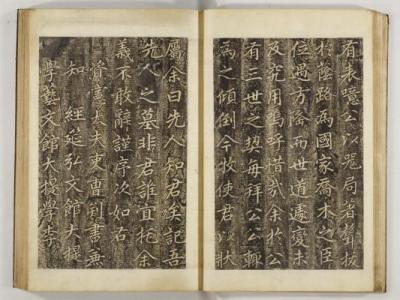 有來噫公以冕局著聲拔
於蔭路爲國家喬木之臣
位遇方隆而世道遽變未
及究用嗚呼惜哉余於公
有三世之契每拜公公輒
爲之傾倒今牧使君以狀
屬余曰先人知君矣記吾
先人之墓非君誰宜托余
義不敢辭謹序次如右
資憲大夫吏曹判書兼
知 經筵弘文館大提
學藝文館大提學李